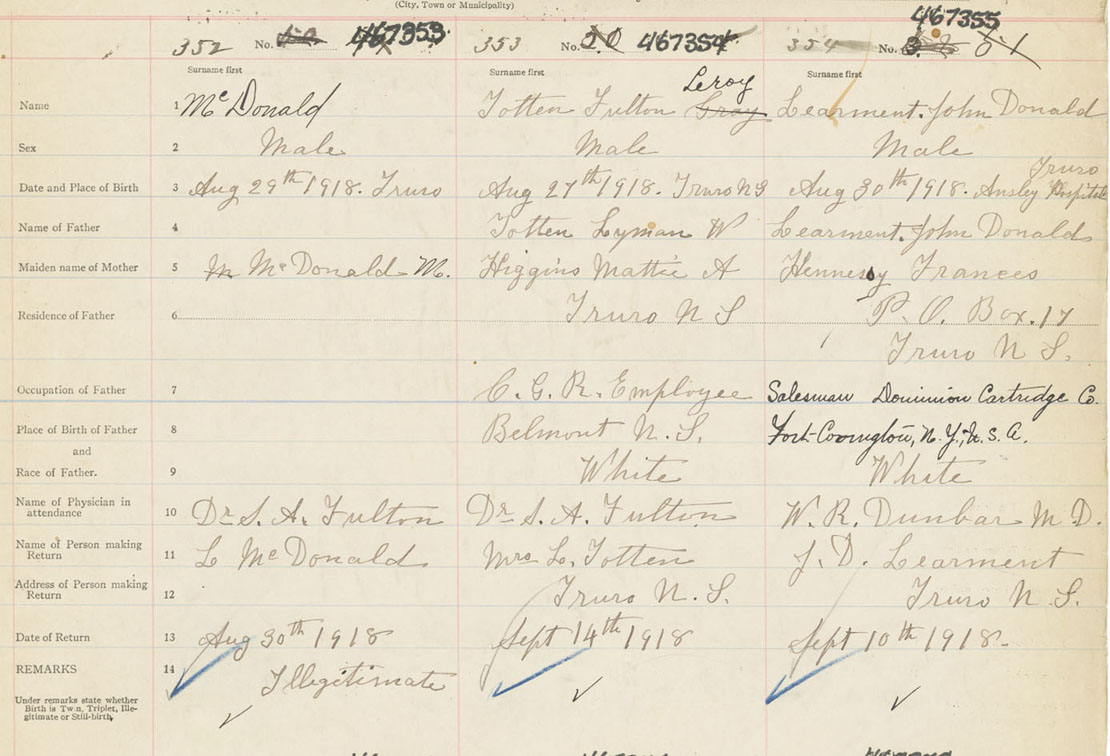 (City, Town or Municipality)
352 No. 467353 353 No. 50 467354 354 No. 51 467355
Surname first Surname first Surname first
Leroy
Name 1 McDonald Totten Fulton Gray Learment. John Donald
Sex 2 Male Male Male
Truro
Date and Place of Birth 3 Aug 29th 1918. Truro Aug 27th 1918. Truro N S Aug 30th 1918. Ansley Hospital
Name of Father 4 Totten Lyman W Learment. John Donald
Maiden name of Mother 5 McDonald M. Higgins Mattie A Hennesy Frances
Residence of Father 6 Truro N S P. O. Box. 17
Truro N S.
Occupation of Father 7 C. G. R. Employee Salesman Dominion Cartridge Co.
Place of Birth of Father 8 Belmont N. S. Fort Covington, N. Y., U. S. A.
and
Race of Father. 9 White White
Name of Physician in
attendance 10 Dr S. A. Fulton Dr S. A. Fulton W. R. Dunbar M D.
Name of Person making
Return 11 L McDonald Mrs L. Totten J. D. Learment
Address of Person making
Return 12 Truro N. S. Truro N S.
Date of Return 13 Aug 30th 1918 Sept 14th 1918 Sept 10th 1918.
REMARKS 14 Illegitimate
Under remarks state whether
Birth is Twin, Triplet, Ille-
gitimate or Still-birth.